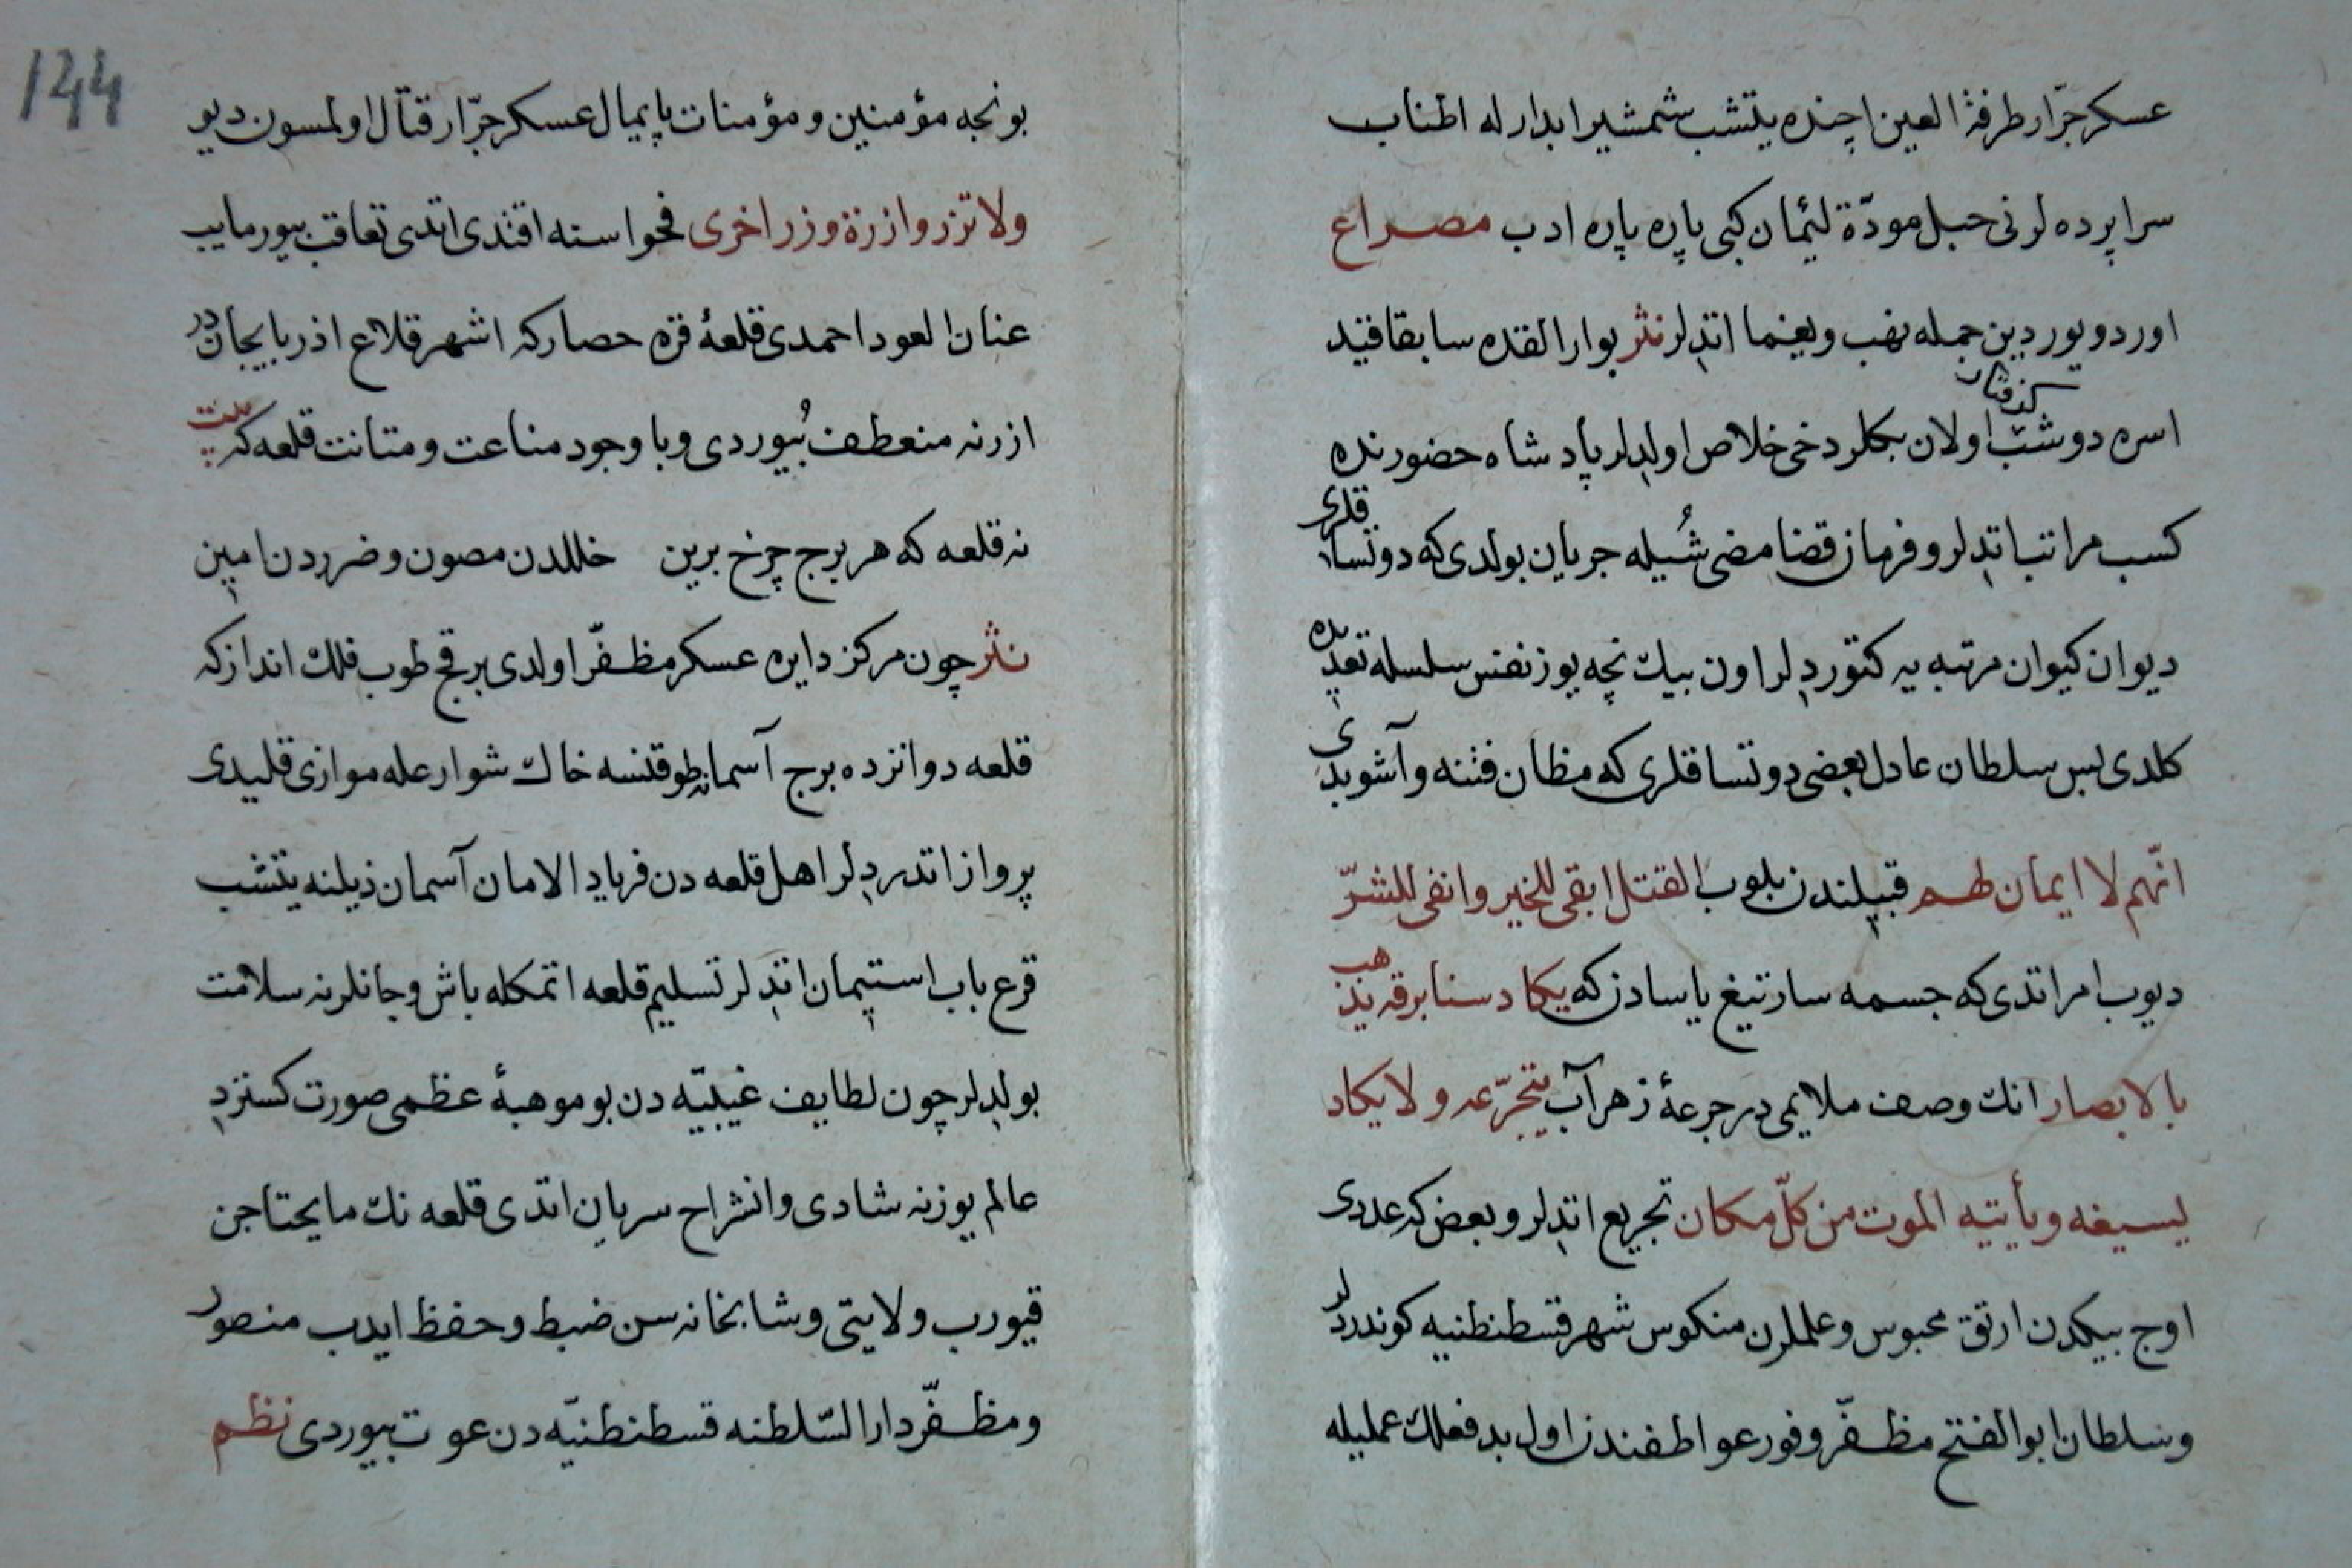 عسكر جرّار طرفة العين اچنده يتشب شمشير ابدارله اطناب
سراپرده لرنى حبل مودّة لئيمان كبى پاره پاره ادب مصراع
اوردو يوردين جمله نهب ويغما اتدلر نثر بوارالقده سابقا قيد
اسره دوشب كرفتار اولان بكلر دخى خلاص اولدلر پادشاه حضورنده
كسب مراتب اتدلر و فرمان قضا مضى شُيله جريان بولدى كه دوتساقلرى
ديوان كيوان مرتبه يه كتوردلر اون بيك نچه يوز نفس سلسله تعديده
كلدى پس سلطان عادل بعضى دوتساقلرى كه مظان فتنه و آشوبدى
انّهم لا ايمان لهم قبيلندن بلوب القتل ابقى للخير وانفى للشرّ
ديوب امر اتدى كه جسمه سار تيغ ياسادن كه يكاد سنا برقه يذهب
بالابصار انك وصف ملايمى در جرعهٔ زهرآب يتجرّعه ولا يكاد
يسيغه ويأتيه الموت من كلّ مكان تجريع اتدلر و بعض كه عددى
اوچ بيكدن ارتق محبوس وعلملرن منكوس شهر قسطنطنيه كوندردلر
وسلطان ابوالفتح مظفّر وفور عواطفندن اول بدفعلك عمليله
144
بونجه مؤمنين و مؤمنات پايمال عسكر جرّار قتّال اولمسون ديو
ولا تزر وازرة وزر اخرى فحواسنه اقتدى اتدى تعاقب بيورمايب
عنان العود احمدى قلعهٔ قره حصار كه اشهر قلاع اذربايجاندر
ازرنه منعطف بُيوردى و با وجود مناعت و متانت قلعه كه بيت
نه قلعه كه هر برج چرخ برين خللدن مصون و ضرردن امين
نثر چون مركز دايره عسكر مظفّر اولدى برقچ طوب فلك انداز كه
قلعه دوانزده برج آسمانه طوقنسه خاك شوارعله موازى قليدى
پرواز اتدردلر اهل قلعه دن فرياد الامان آسمان ذيلنه يتشب
قرع باب استيمان اتدلر تسليم قلعه اتمكله باش و جانلرنه سلامت
بولدلر چون لطايف غيبيّه دن بو موهبهٔ عظمى صورت كسترد
عالم يوزنه شادى و انشراح سريان اتدى قلعه نك مايحتاجن
قيورب ولايتى و شابخانه سن ضبط و حفظ ايدب منصور
ومظفّر دار السّلطنه قسطنطنيّه دن عوت بيوردى نظم